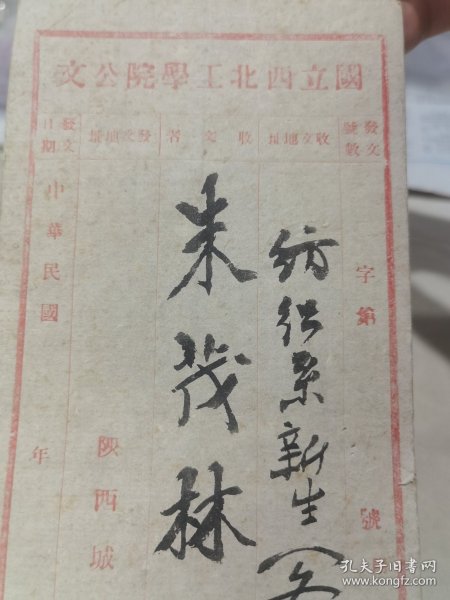 國立西北工學院公文
發文號數
收文地址
收文者
發文地址
發文日期
字第 號
紡织系新生（
朱茂林
陝西城
中華民國 年
孔夫子旧书网
www.kongfz.com